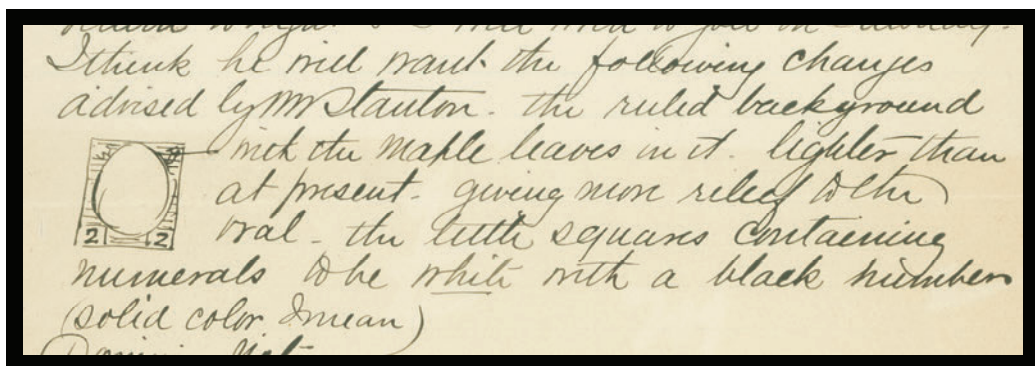 I think he will want the following changes
advised by Mr Stanton - the ruled background
with the maple leaves in it - lighter than
at present - giving more relief to the
oval - the little squares containing
2 2
numerals to be white with a black number
(solid color I mean)